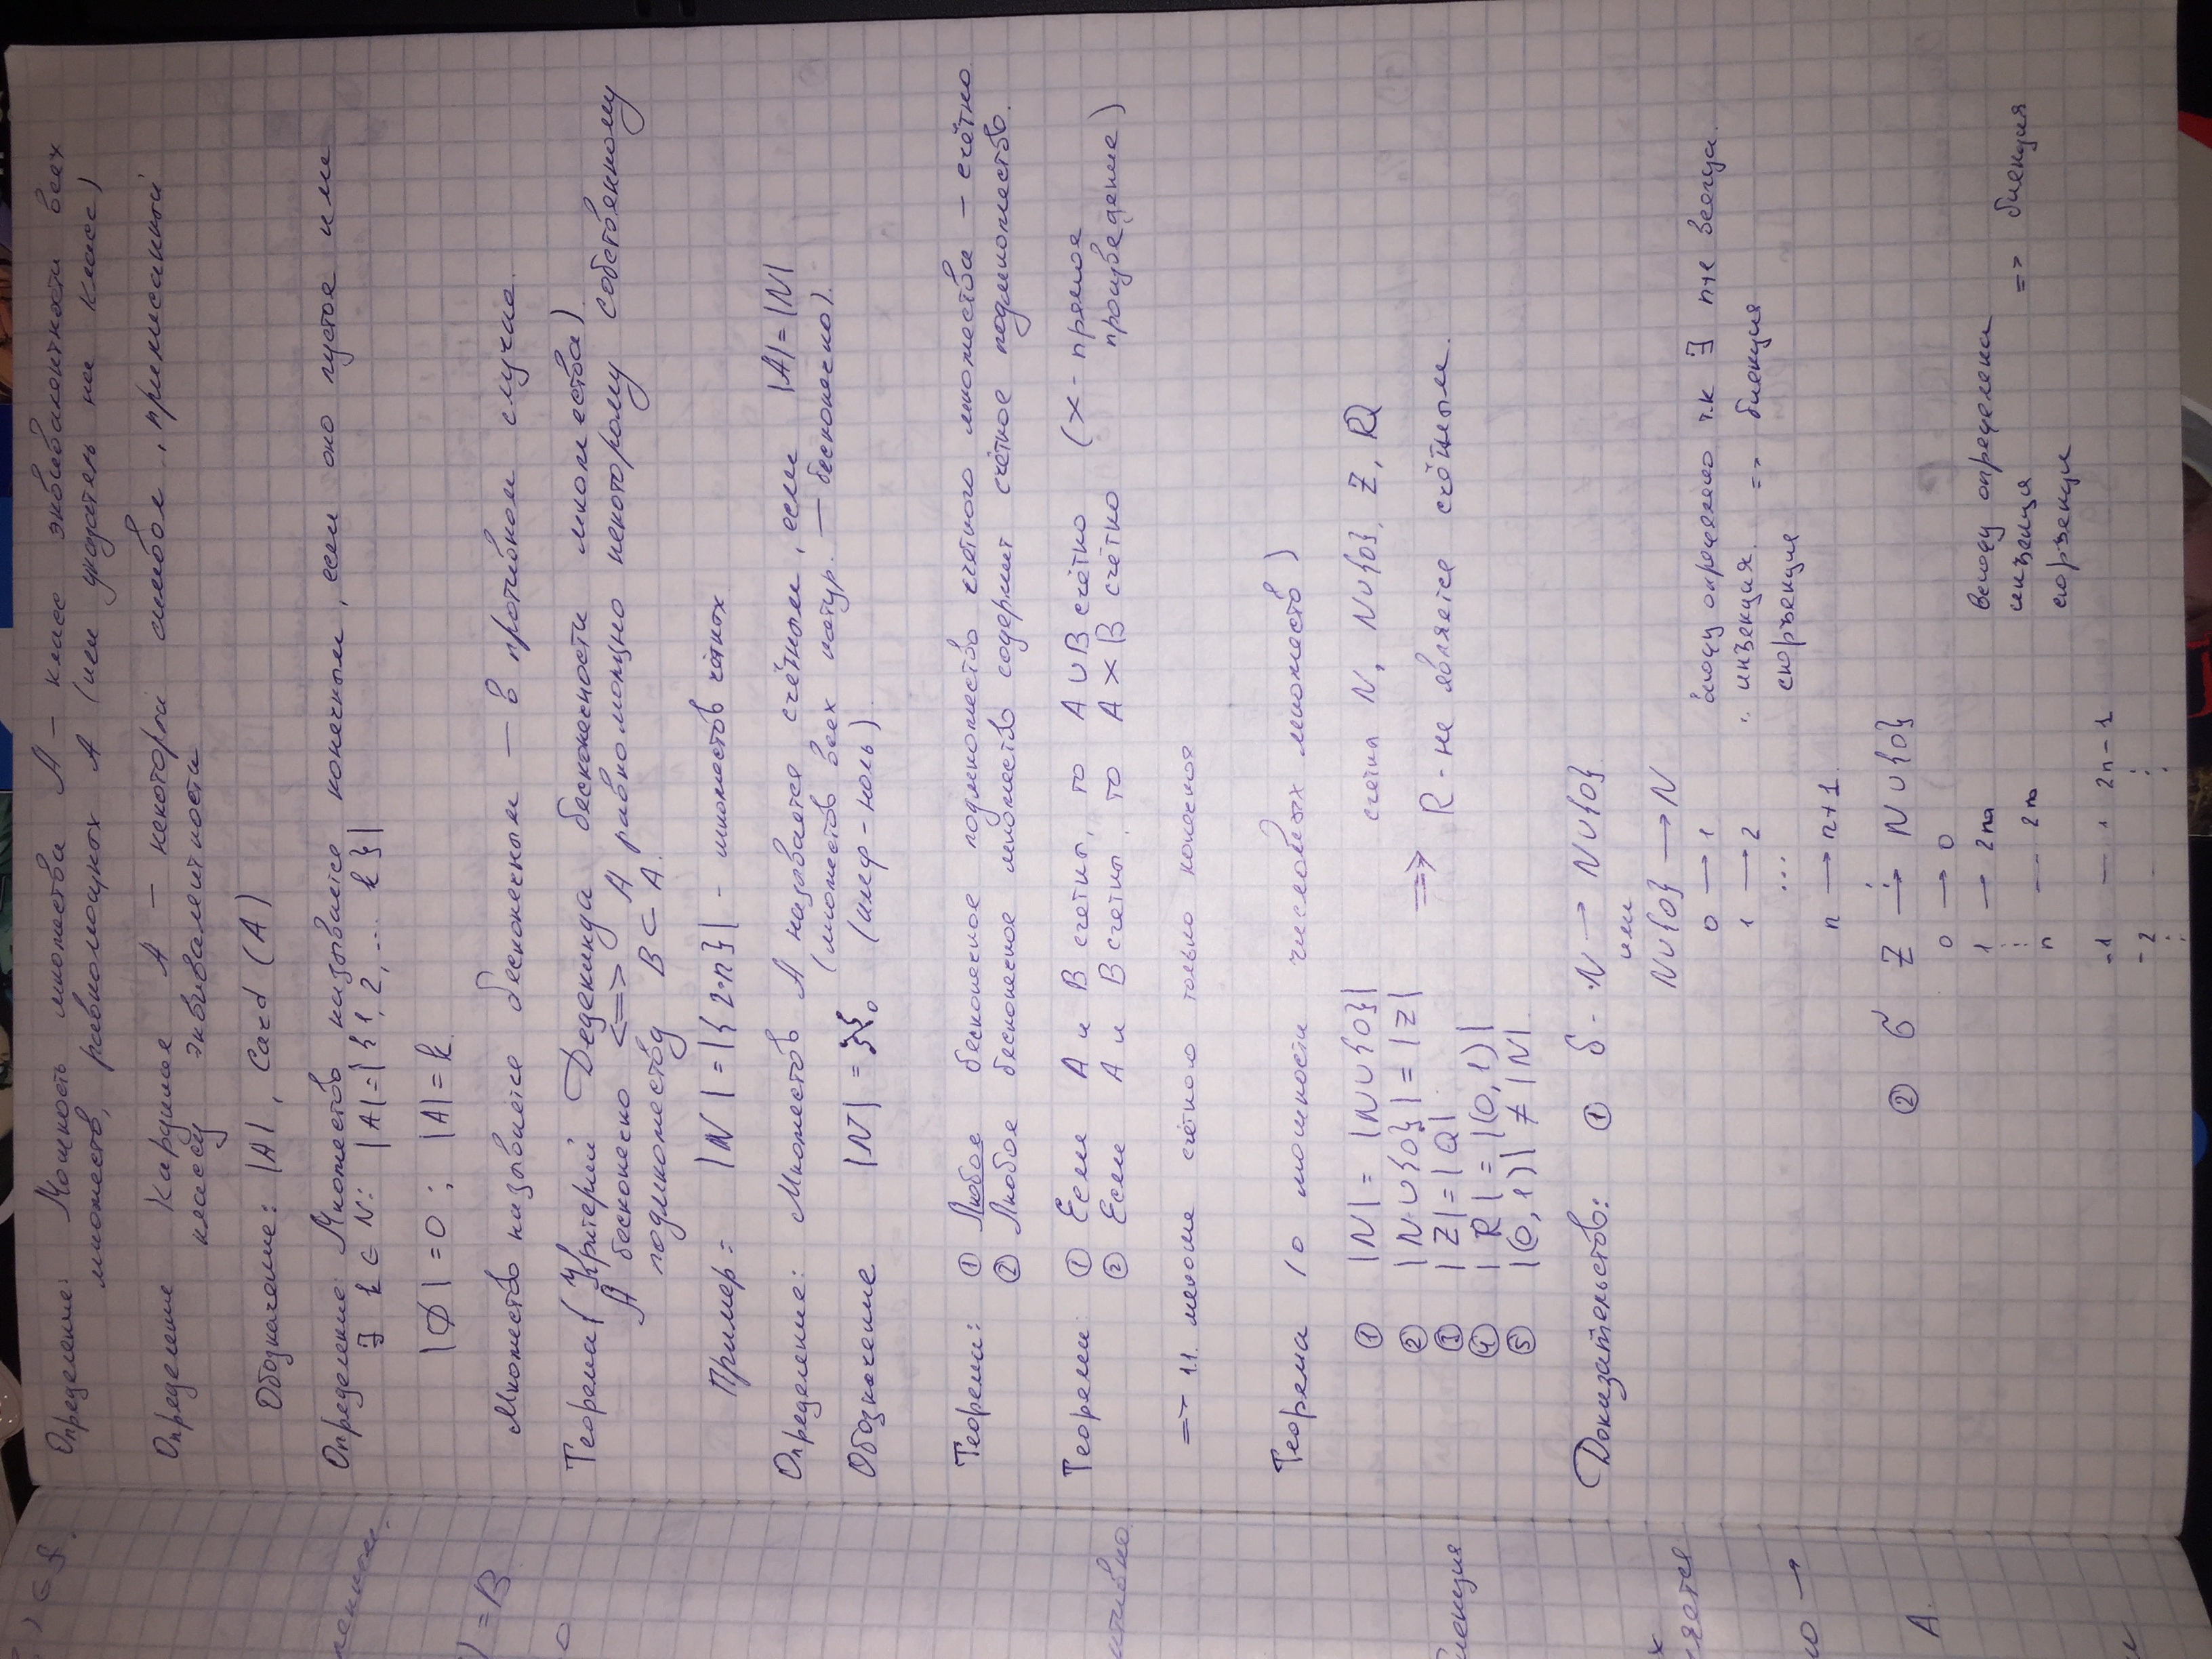 ) ∈ f.
Определение: Мощность множества A — класс эквивалентности всех
множеств, равномощных A (или указатель на класс)
Определение Кардинал A — некоторый символ, приписанный
классу эквивалентности
Обозначение: |A|, Card (A)
Определение: Множество называется конечным, если оно пустое или
∃ k ∈ N: |A|=|{1, 2, ... k}|
|∅| = 0 ; |A| = k.
) = B
Множество называется бесконечным — в противном случае.
Теорема (Критерий Дедекинда бесконечности множества).
A бесконечно <=> A равномощно некоторому собственному
подмножеству B ⊂ A.
Пример: |N| = |{2·n}| - множество чётных
Определение: Множество A называется счётным, если |A|=|N|
(множество всех натур. — бесконечно).
Обозначение |N| = ℵ₀ (алеф-ноль).
Теорема: ① Любое бесконечное подмножество счетного множества — счётно
② Любое бесконечное множество содержит счётное подмножество.
Теорема ① Если A и B счетны, то A ∪ B счётно (× - прямое
② Если A и B счетны, то A × B счётно произведение)
=> 1.1. меньше счётного только конечное
Теорема (о мощности числовых множеств)
① |N| = |N∪{0}| счетны N, N∪{0}, Z, Q
② |N∪{0}| = |Z| =>
③ |Z| = |Q| R - не является счётным.
④ |R| = |(0,1)|
⑤ |(0,1)| ≠ |N|.
Доказательство: ① б - N → N∪{0}.
или
N∪{0} → N
0 → 1 всюду определено т.к ∃ n+1 всегда.
1 → 2 инъекция. => биекция
... сюръекция
n → n+1.
⋮
② б Z → N∪{0}
A.
0 → 0
1 → 2n всюду определена
⋮ инъекция => биекция
n — 2n
сюръекция
-1 — 1 2n-1
-2 - ⋮
⋮